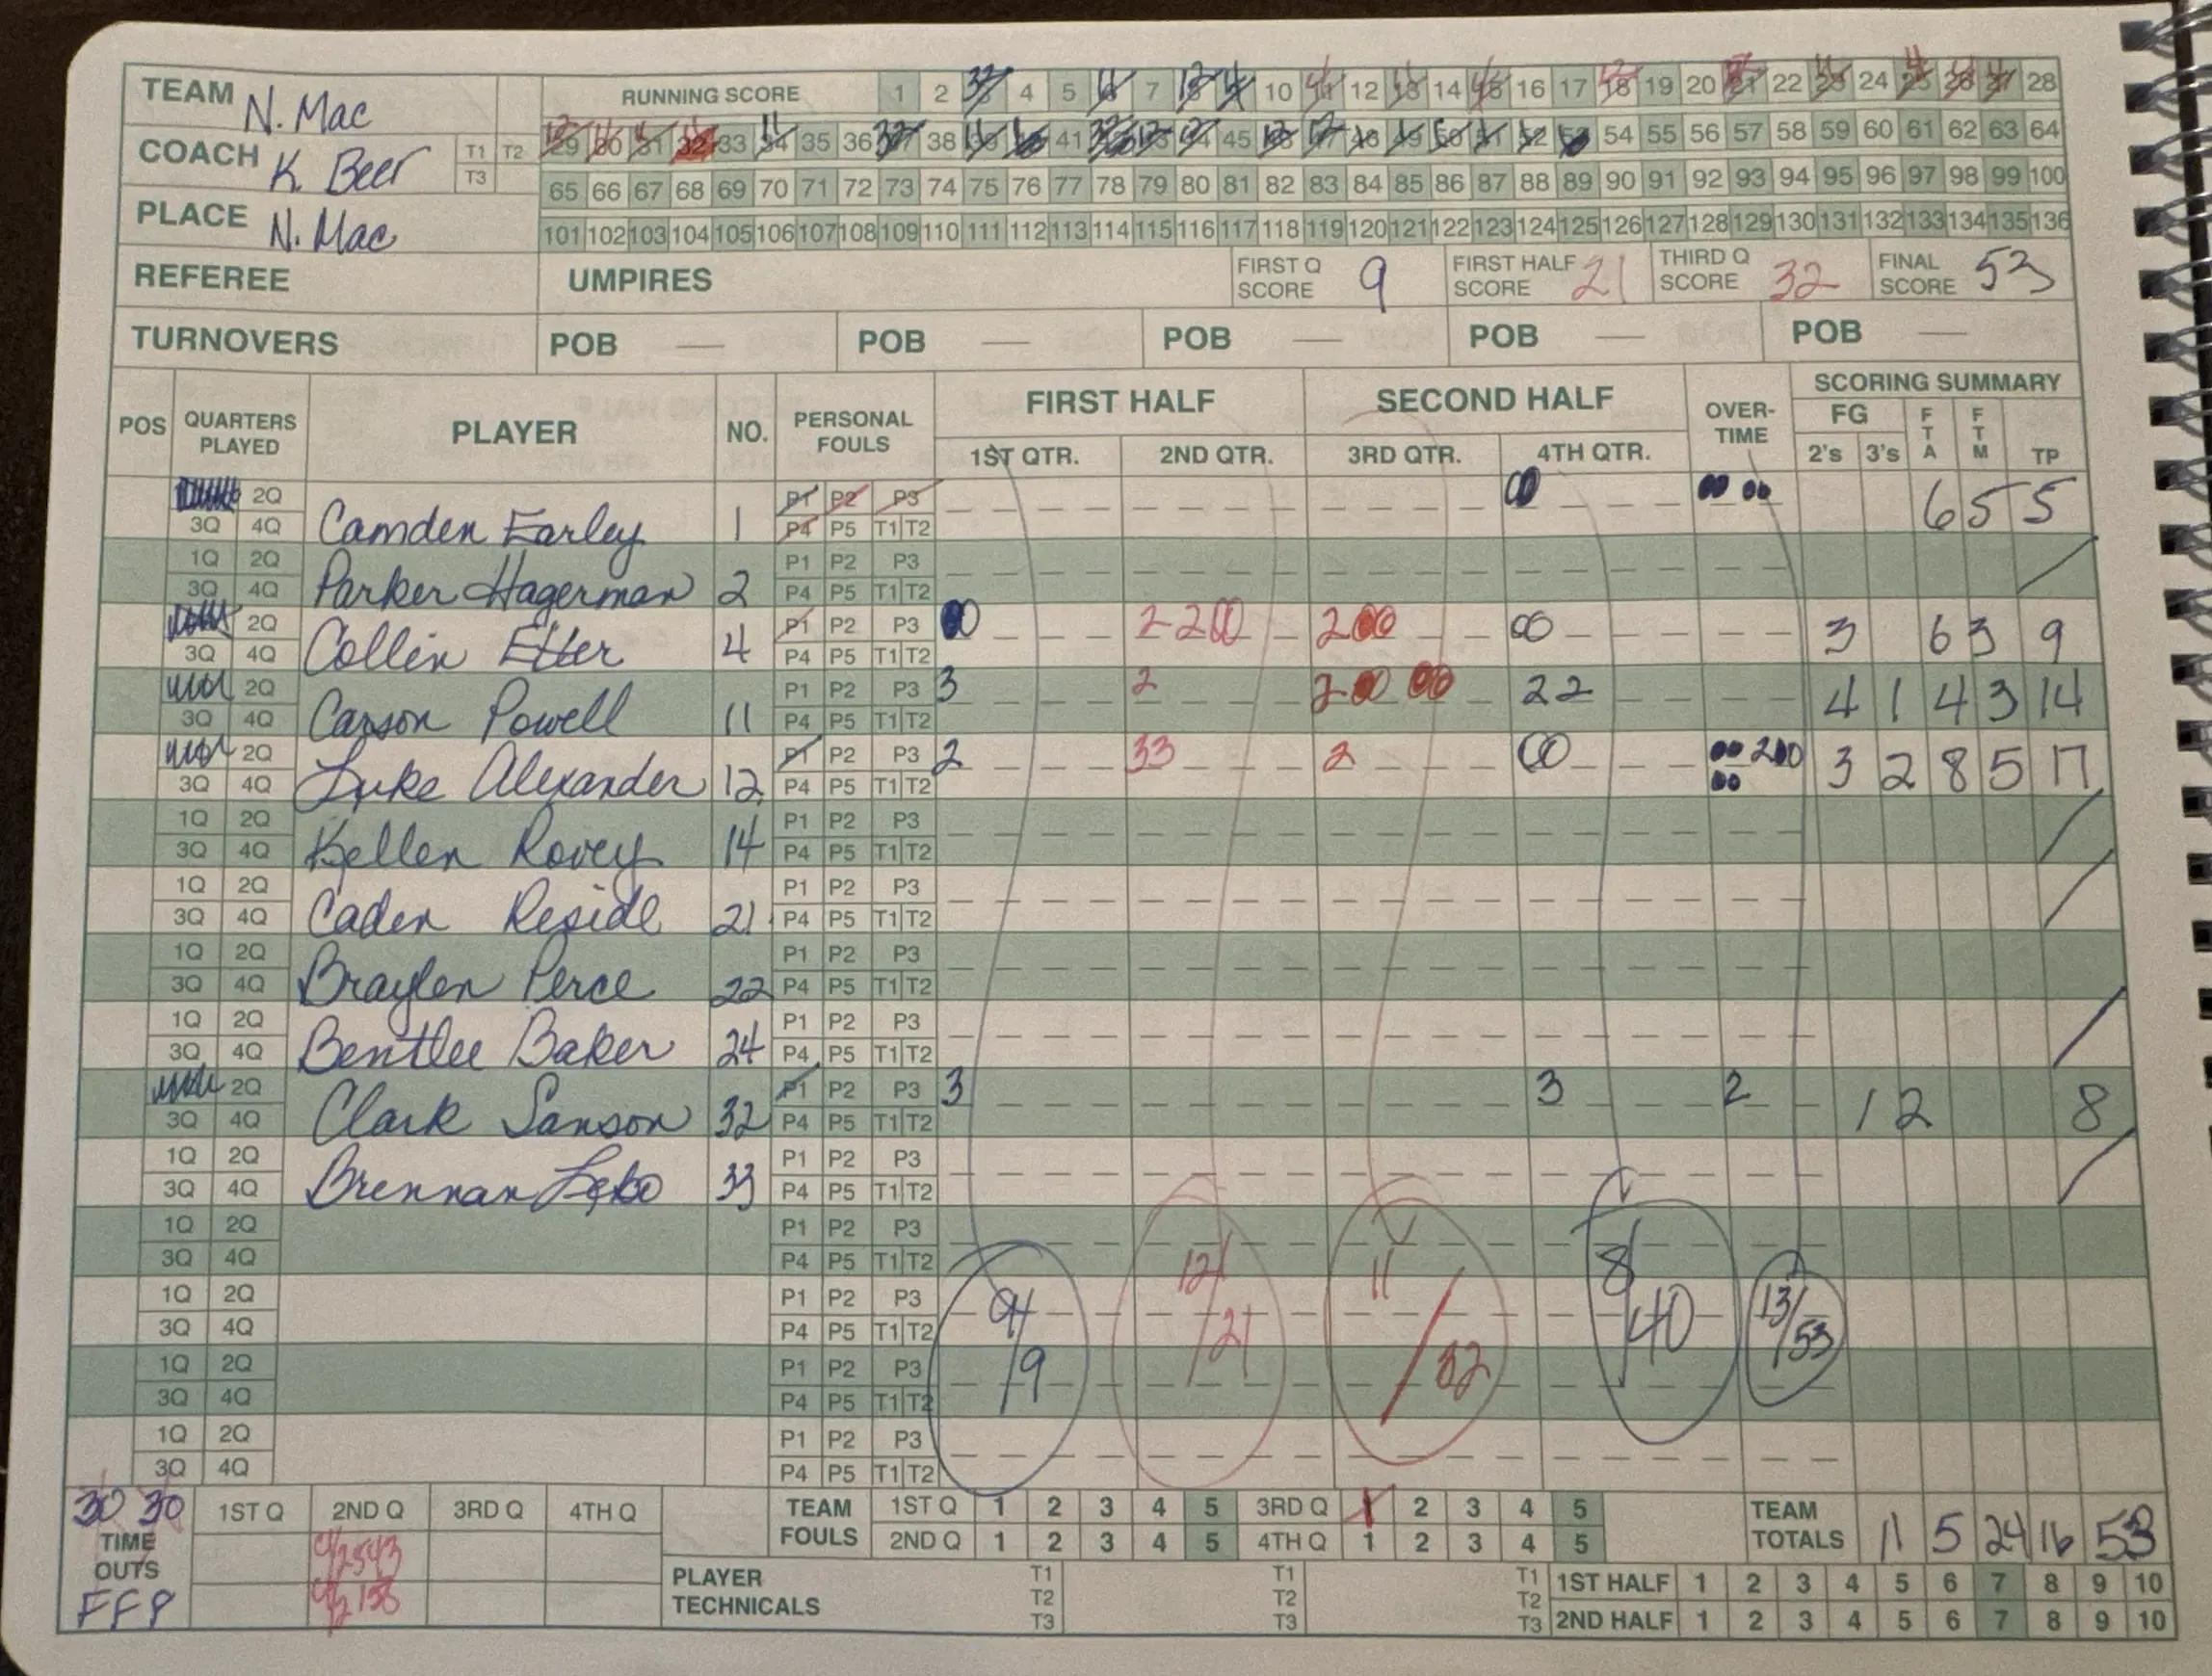 TEAM N. Mac
COACH K. Beer T1 T2 T3
PLACE N. Mac
RUNNING SCORE 1 2 3 4 5 6 7 8 9 10 11 12 13 14 15 16 17 18 19 20 21 22 23 24 25 26 27 28
29 30 31 32 33 34 35 36 37 38 39 40 41 42 43 44 45 46 47 48 49 50 51 52 53 54 55 56 57 58 59 60 61 62 63 64
65 66 67 68 69 70 71 72 73 74 75 76 77 78 79 80 81 82 83 84 85 86 87 88 89 90 91 92 93 94 95 96 97 98 99 100
101 102 103 104 105 106 107 108 109 110 111 112 113 114 115 116 117 118 119 120 121 122 123 124 125 126 127 128 129 130 131 132 133 134 135 136
REFEREE UMPIRES FIRST Q SCORE 9 FIRST HALF SCORE 21 THIRD Q SCORE 32 FINAL SCORE 53
TURNOVERS POB — POB — POB — POB — POB —
POS QUARTERS PLAYED PLAYER NO. PERSONAL FOULS FIRST HALF SECOND HALF OVER-TIME SCORING SUMMARY
1ST QTR. 2ND QTR. 3RD QTR. 4TH QTR. FG 2's 3's FTA FTM TP
2Q P1 P2 P3
3Q 4Q Camden Earley 1 P4 P5 T1 T2 6 5 5
1Q 2Q P1 P2 P3
3Q 4Q Parker Hagerman 2 P4 P5 T1 T2
2Q P1 P2 P3 2 2 2
3Q 4Q Collin Etter 4 P4 P5 T1 T2 3 6 3 9
2Q P1 P2 P3 3 2 2 2 2
3Q 4Q Carson Powell 11 P4 P5 T1 T2 4 1 4 3 14
2Q P1 P2 P3 2 33 2 2
3Q 4Q Luke Alexander 12 P4 P5 T1 T2 3 2 8 5 17
1Q 2Q P1 P2 P3
3Q 4Q Kellen Rovey 14 P4 P5 T1 T2
1Q 2Q P1 P2 P3
3Q 4Q Caden Reside 21 P4 P5 T1 T2
1Q 2Q P1 P2 P3
3Q 4Q Braylen Perce 22 P4 P5 T1 T2
1Q 2Q P1 P2 P3
3Q 4Q Bentlee Baker 24 P4 P5 T1 T2
2Q P1 P2 P3 3 3 2
3Q 4Q Clark Sanson 32 P4 P5 T1 T2 1 2 8
1Q 2Q P1 P2 P3
3Q 4Q Brennan Lebo 33 P4 P5 T1 T2
1Q 2Q P1 P2 P3
3Q 4Q P4 P5 T1 T2
1Q 2Q P1 P2 P3
3Q 4Q P4 P5 T1 T2
9/9 12/21 11/32 8/40 13/53
1Q 2Q P1 P2 P3
3Q 4Q P4 P5 T1 T2
1Q 2Q P1 P2 P3
3Q 4Q P4 P5 T1 T2
30 30 TIME OUTS FFP
1ST Q 2ND Q 3RD Q 4TH Q
TEAM FOULS 1ST Q 1 2 3 4 5 3RD Q 1 2 3 4 5
2ND Q 1 2 3 4 5 4TH Q 1 2 3 4 5
TEAM TOTALS 11 5 24 16 53
PLAYER TECHNICALS T1 T2 T3 T1 T2 T3 T1 T2 T3
1ST HALF 1 2 3 4 5 6 7 8 9 10
2ND HALF 1 2 3 4 5 6 7 8 9 10